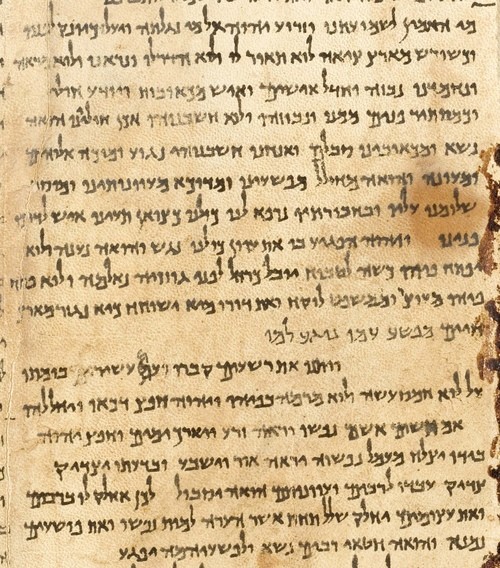 מי האמין לשמועתנו וזרוע יהוה אל מי נגלתה ויעל כיונק לפניו
וכשורש מארץ ציה לוא תואר לו ולוא הדר לו ונראנו ולוא מראה
ונחמדנו נבזה וחדל אישים ואיש מכאובות ויודע חולי
וכמסתיר פנים ממנו ונבוזהו ולוא חשבנוהו אכן חוליינו הואה
נשא ומכאובינו סבלם ואנחנו חשבנוהו נגוע ומוכה אלוהים
ומעונה והואה מחולל מפשעינו ומדוכא מעוונותינו ומוסר
שלומנו עליו ובחבורתיו נרפא לנו כולנו כצואן תעינו איש לדרכו
פנינו ויהוה הפגיע בו את עוון כולנו נגש והואה נענה ולוא
פתח פיהו כשה לטבוח יובל כרחל לפני גוזזיה נאלמה ולוא פתח
פיהו מעוצר וממשפט לוקח ואת דורו מיא ישוחח כיא נגזר מארץ
חיים מפשע עמו נוגע למו
ויתנו את רשעים קברו ועם עשיר בומתו
על לוא חמס עשה ולוא מרמה בפיהו ויהוה חפץ דכאו ויחללהו
אם תשים אשם נפשו יראה זרע ויארך ימים וחפץ יהוה
בידו יצלח מעמל נפשוה יראה אור וישבע ובדעתו יצדיק
צדיק עבדו לרבים ועוונותם הואה יסבול לכן אחלק לו ברבים
ואת עצומים יחלק שלל תחת אשר הערה למות נפשו ואת פושעים
נמנא והואה חטאי רבים נשא ולפשעיהמה יפגע